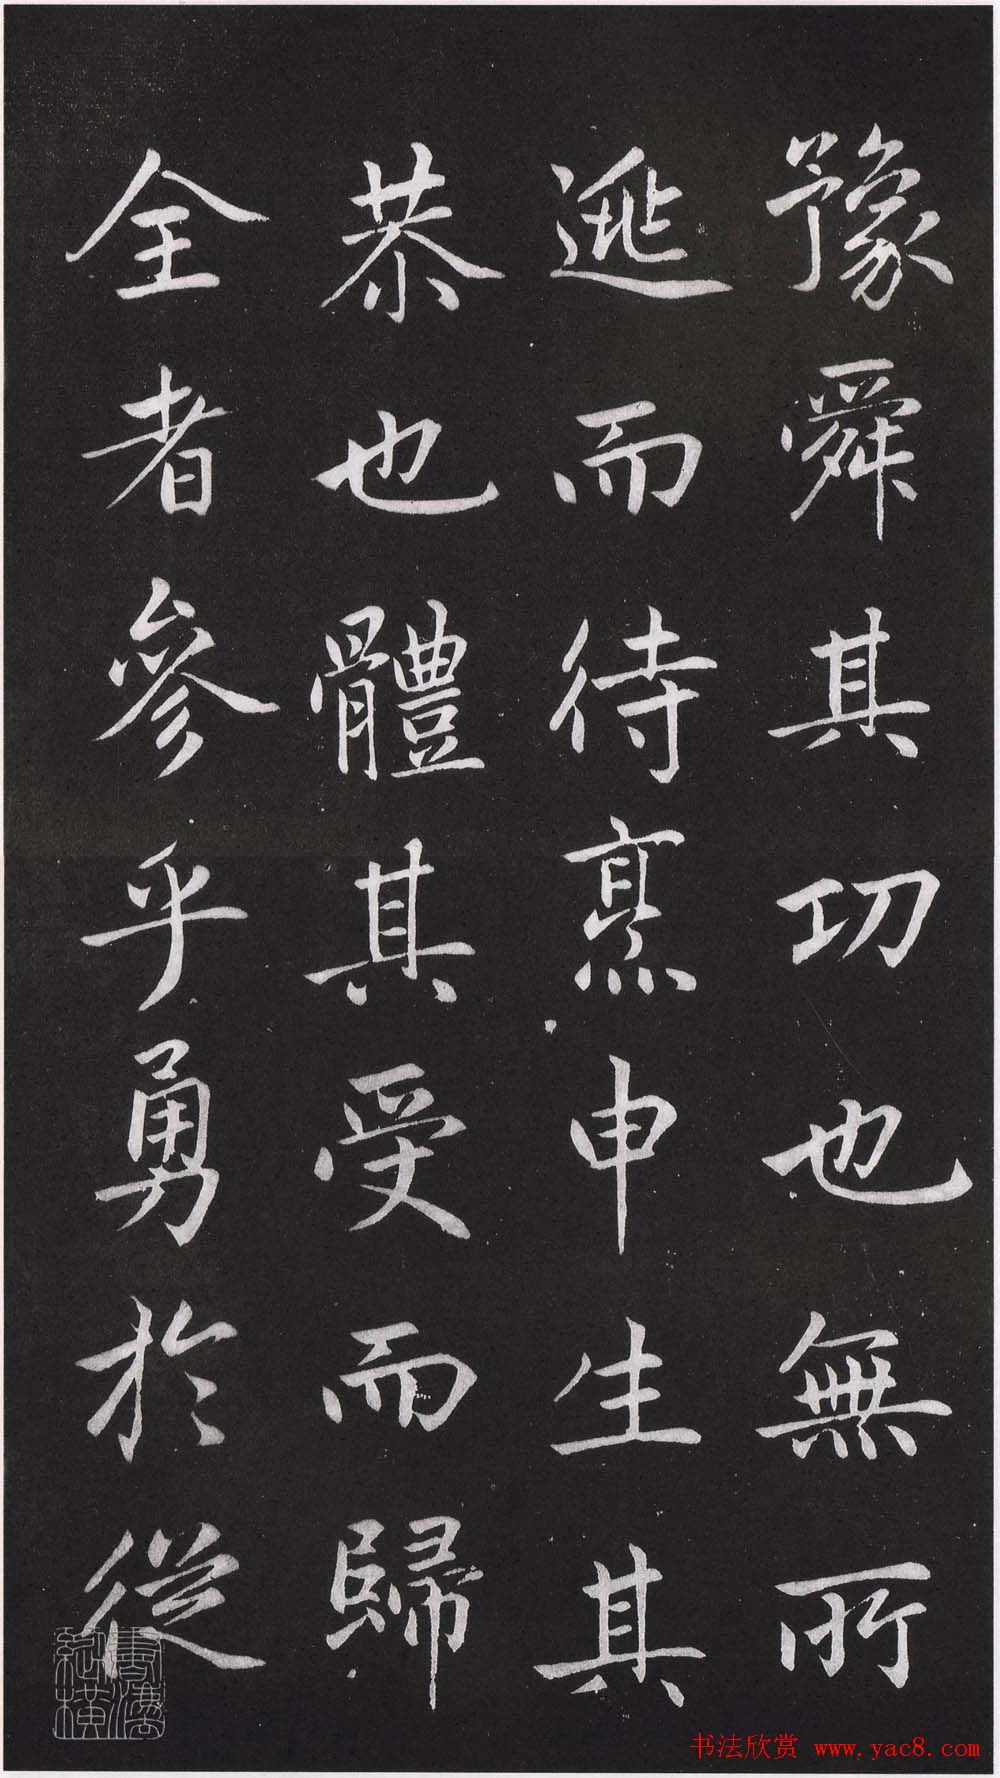 豫舜其功也無所
逃而待烹申生其
恭也體其受而歸
全者參乎勇於從
書法縱橫
书法欣赏 www.yac8.com